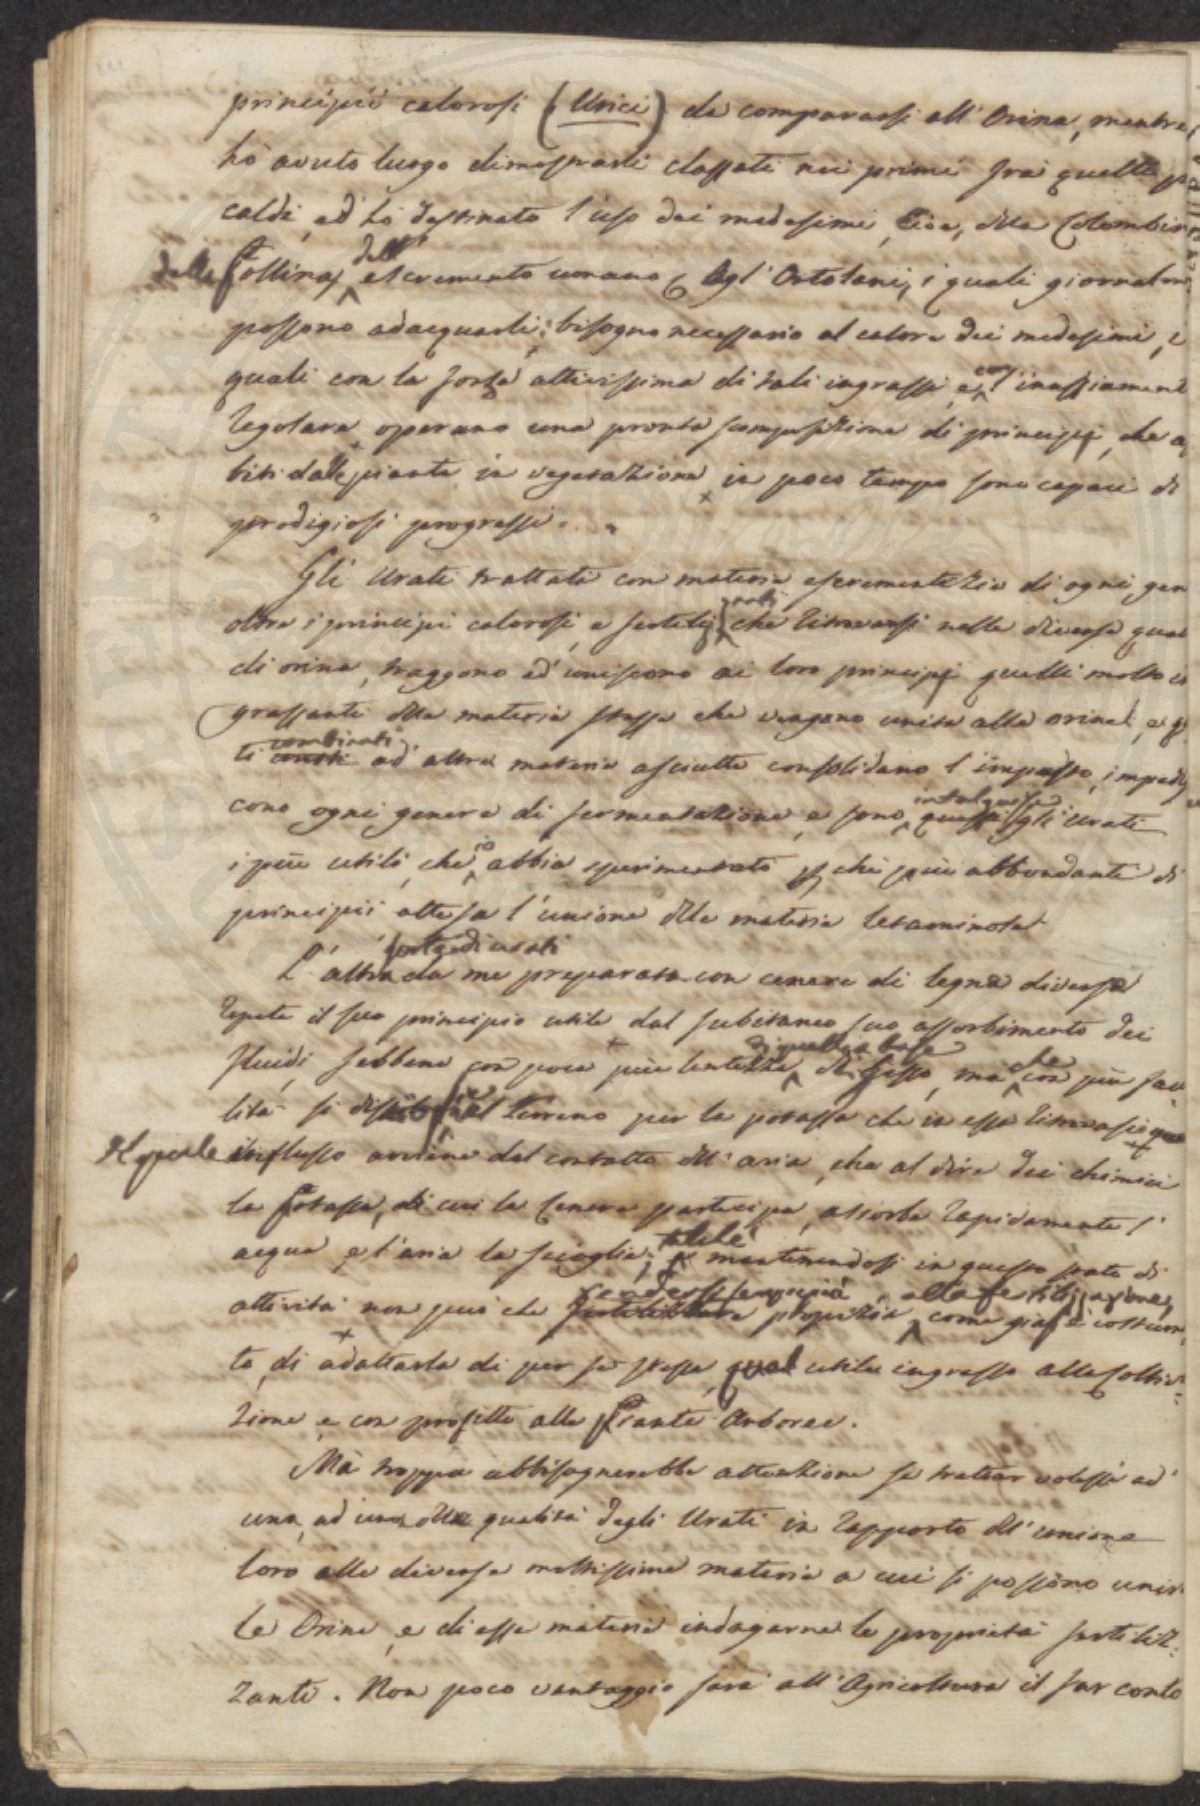 principii calorosi (Urici) da compararsi all'Orina, mentre
hò avuto luogo dimostrarli classati nei primi frà quelli più
caldi, ed hò destinato l'uso dei medesimi, Cioè, della Colombina
della Pollina, dell' escremento umano, Agl'Ortolani, i quali giornalm
possono adacquarli: bisogno necessario al calore dei medesimi, e
quali con la forza attivissima di tali ingrassi, e con l'inaffiament
regolare operano una pronta scomposizione di principj, che as
biti dalle piante in vegetazione in poco tempo sono capaci di
prodigiosi progressi.
Gli Urati trattati con materia escrementizia di ogni gen
oltre i principj calorosi, e fertili, noti che ritrovansi nelle diverse qual
di orina, traggono ed' uniscono ai loro principj quelli molto in
grassanti della materia stessa che vengono unita alla orina, e q
ti combinati ad' altre materie asciutte consolidano l'impasto, impedis
cono ogni genere di fermentazione, e sono in tal guisa gli Urati
i più utili, che io abbia sperimentati per chè più abbondanti di
principii attesa l'unione delle materie letaminose
L'altra sorte di urati da me preparata con cenere di legna diversa
repete il suo principio utile dal subitaneo suo assorbimento dei
fluidi, sebbene con poca più lentezza di quella a base di Gesso, ma che con più faci
lità si al Terreno per la potassa che in essa ritrovasi
Il quale influsso avviene dal contatto dell'aria, che al dire dei chimici
la Potassa, di cui la Cenere partecipa, assorbe rapidamente l'
acqua e l'aria la scioglie; talchè mantenendosi in questo stato di
attività non può che rendersi sempre più propizia alla fertilizzazione, come già è costuma
to, di adattarla di per se stessa, qual utile ingrasso alla Coltiva:
zione, e con profitto alle Piante Arboree.
Mà troppa abbisognerebbe attenzione se trattar volessi ad'
una, ad una delle qualità degli Urati in rapporto dell'unione
loro alle diverse moltissime materie a cui si possono unir
le Orine, e di esse materie indagarne le proprietà fertiliz:
zanti. Non poco vantaggio sarà all'Agricoltura il far conto